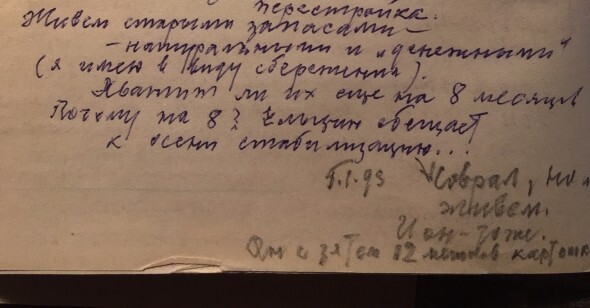 перестройка.
Живем старыми запасами –
– натуральными и „денежными“
(я имею в виду сбережения).
Хватит ли их еще на 8 месяцев
Почему на 8? Ельцин обещает
к осени стабилизацию...
1.1.93 Соврал, но
живем.
И он – тоже.
Он с зятем 12 мешков картошк